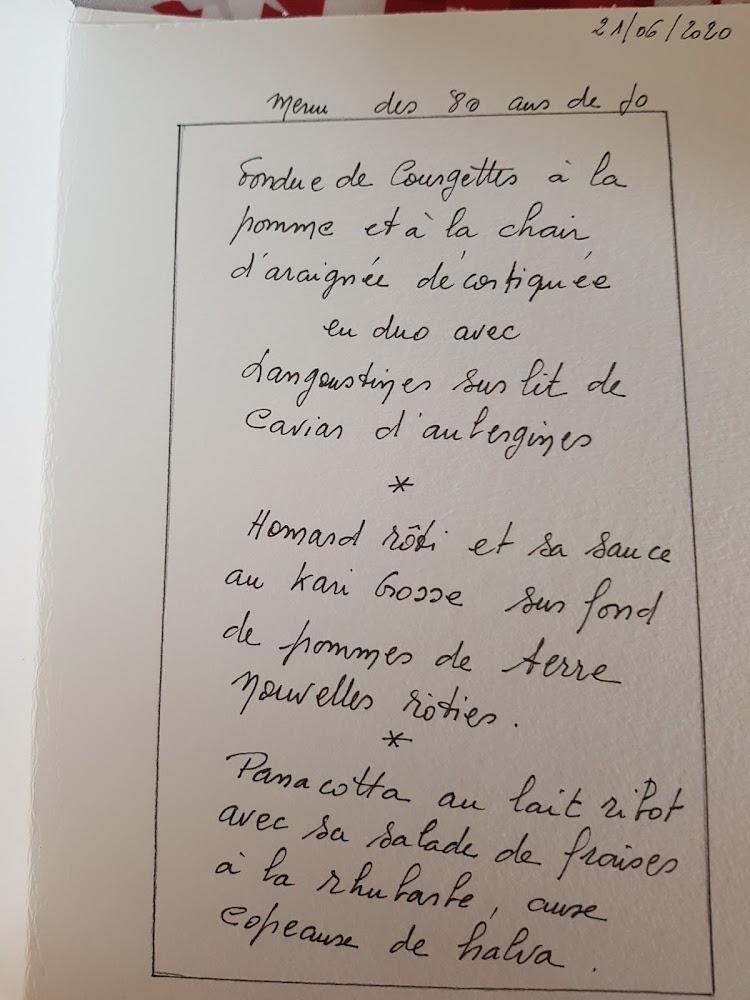 21/06/2020
Menu des 80 ans de Jo
Fondue de Courgettes à la
pomme et à la chair
d'araignée décortiquée
en duo avec
Langoustines sur lit de
Caviar d'aubergines
*
Homard rôti et sa sauce
au Kari Gosse sur fond
de pommes de terre
nouvelles rôties.
*
Panacotta au lait ribot
avec sa salade de fraises
à la rhubarbe, aux
copeaux de halva.